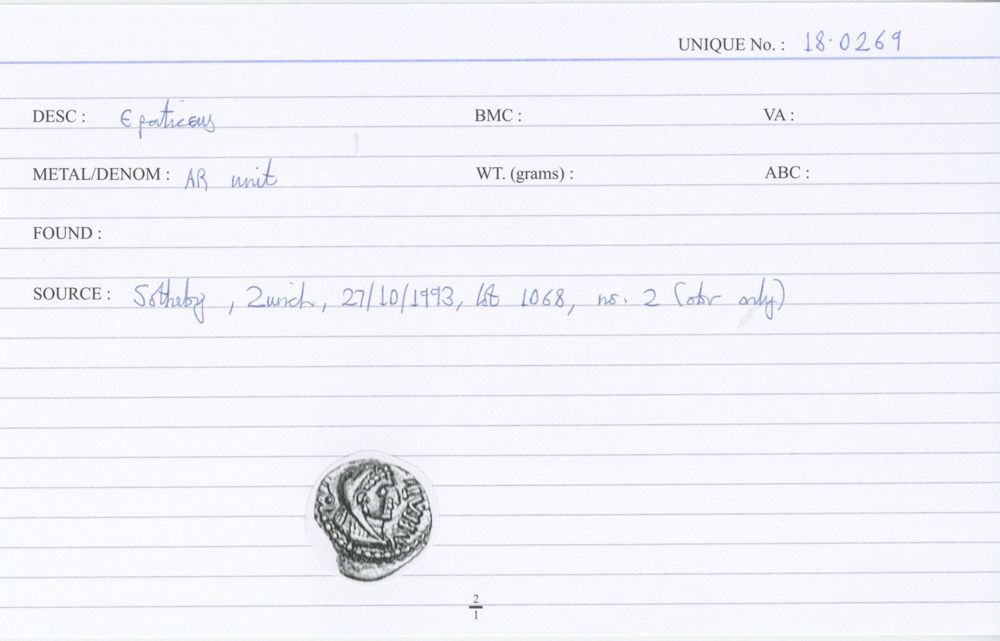 UNIQUE No. : 18.0269
DESC : Epaticcus BMC : VA :
METAL/DENOM : AR unit WT. (grams) : ABC :
FOUND :
SOURCE : Sotheby, Zurich, 27/10/1993, lot 1068, no. 2 (obv only)
2
1